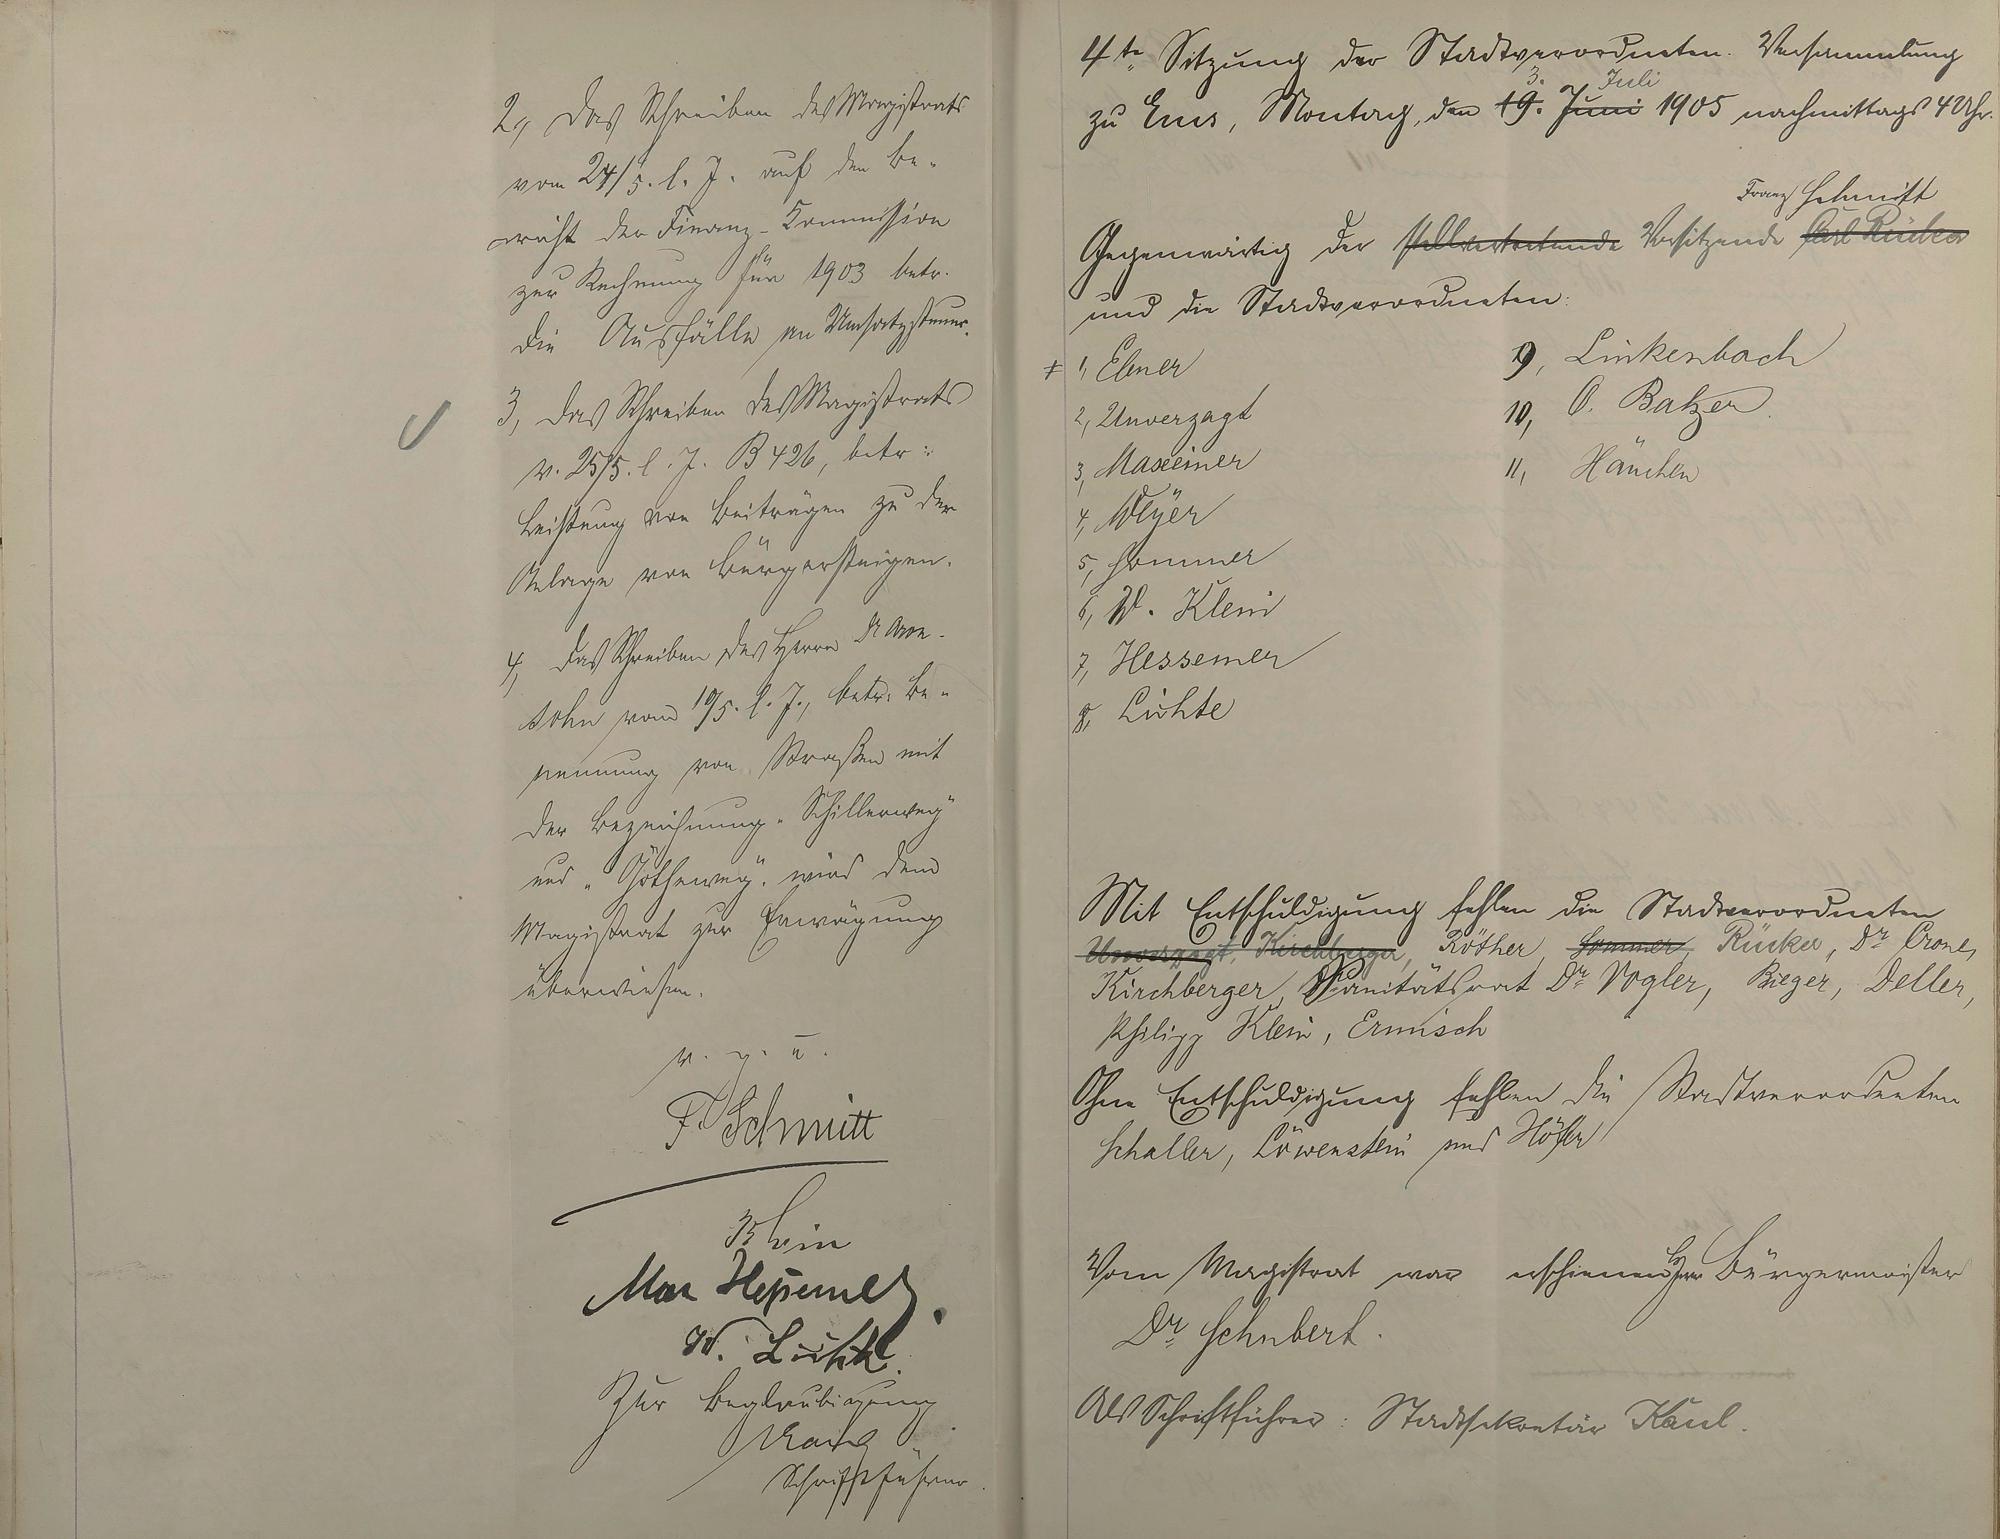 2, Das Schreiben des Magistrats
vom 24/5. l. J. auf den Be-
richt der Finanz-Commission
zur Rechnung für 1903 betr.
die Ausfälle an Umsatzsteuer.
3, Das Schreiben des Magistrats
v. 25/5. l. J. B 426, betr:
Leistung von Beiträgen zu der
Anlage von Bürgersteigen.
4, Das Schreiben des Herrn Dr Aron-
sohn vom 19/5. l. J., betr. Be-
nennung von Straßen mit
der Bezeichnung „Schillerweg"
und „Götheweg". wird dem
Magistrat zur Erwägung
überwiesen.
v. g. u.
F. Schmitt
Klein
Max Hessemer.
W. Lichte.
Zur Beglaubigung
Kaul
Schriftführer.
4te Sitzung der Stadtverordneten-Versammlung
3. Juli
zu Ems, Montag, den 19. Juni 1905 nachmittags 4 Uhr.
Franz Schmitt
Gegenwärtig der stellvertretende Vorsitzende Carl Rücker
und die Stadtverordneten:
1, Ebner
2, Unverzagt
3, Maxeiner
4, Meyer
5, Sommer
6, W. Klein
7, Hessemer
8, Lichte
9, Linkenbach
10, O. Balzer.
11, Hänchen
Mit Entschuldigung fehlen die Stadtverordneten
Unverzagt, Kirchberger, Röther, Sommer, Rücker, Dr Crone,
Kirchberger, Sanitätsrat Dr Vogler, Bieger, Deller,
Philipp Klein, Ermisch
Ohne Entschuldigung fehlen die Stadtverordneten
Schaller, Löwenstein und Höfer
Vom Magistrat war erschienen Herr Bürgermeister
Dr Schubert.
Als Schriftführer: Stadtsekretär Kaul.